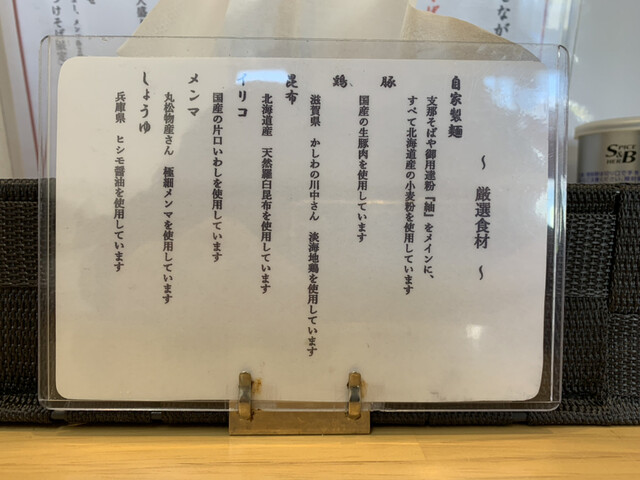 ～ 厳選食材 ～
自家製麺
支那そばや御用達粉『紬』をメインに、
すべて北海道産の小麦粉を使用しています
豚
国産の生豚肉を使用しています
鶏
滋賀県 かしわの川中さん 淡海地鶏を使用しています
昆布
北海道産 天然羅臼昆布を使用しています
イリコ
国産の片口いわしを使用しています
メンマ
丸松物産さん 極細メンマを使用しています
しょうゆ
兵庫県 ヒシモ醤油を使用しています
SPICE
S&B
HERB